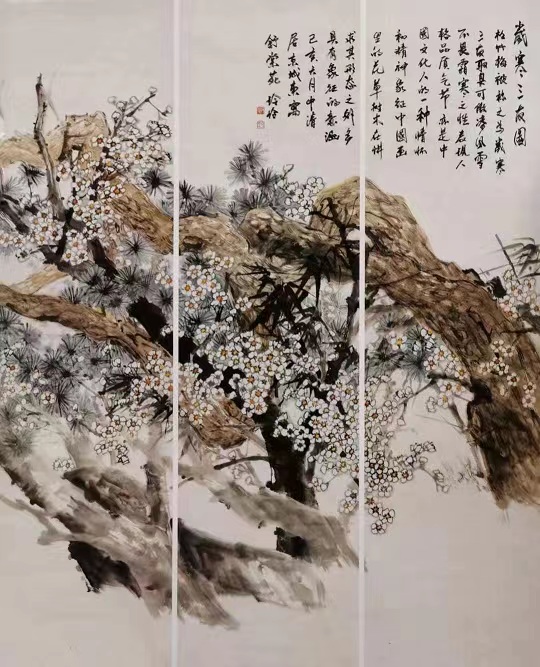 歲寒三友图
松竹梅被称之为歲寒
三友取其可傲凌风雪
不畏霜寒之性表现人
格品质气节亦是中
国文化人的一种情怀
和精神象征中国画
里的花草树木在讲
求其形态之外多
具有象征的意涵
己亥六月中清
居京城東寓